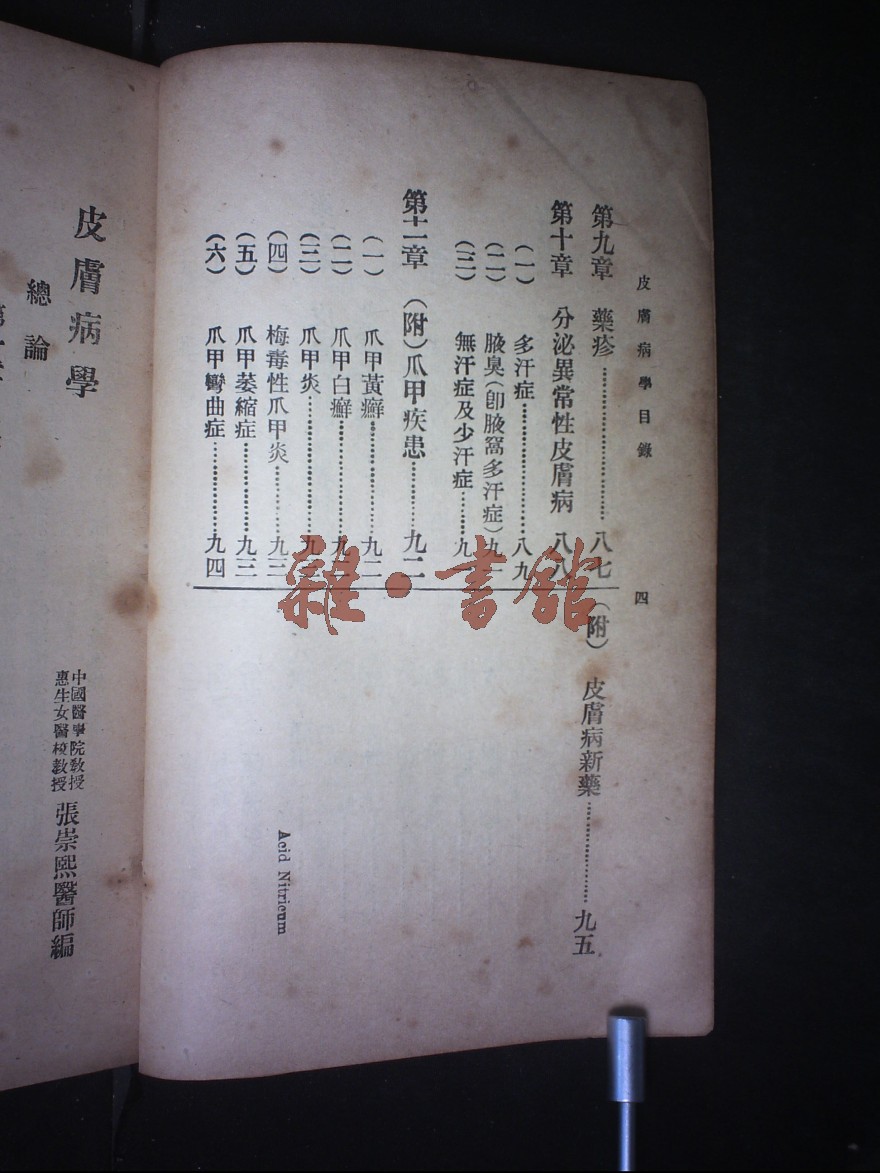 皮膚病學目錄
四
第九章 藥疹……………八七
第十章 分泌異常性皮膚病 八八
(一) 多汗症……………八九
(二) 腋臭(卽腋窩多汗症)九
(三) 無汗症及少汗症………九
第十一章 (附)爪甲疾患…………九二
(一) 爪甲黃癬……………九二
(二) 爪甲白癬……………九
(三) 爪甲炎……………九
(四) 梅毒性爪甲炎………九三
(五) 爪甲萎縮症…………九三
(六) 爪甲彎曲症…………九四
(附) 皮膚病新藥……………九五
Acid Nitricum
雜·書館
皮膚病學
總論
中國醫學院敎授
惠生女醫校敎授
張崇熙醫師編